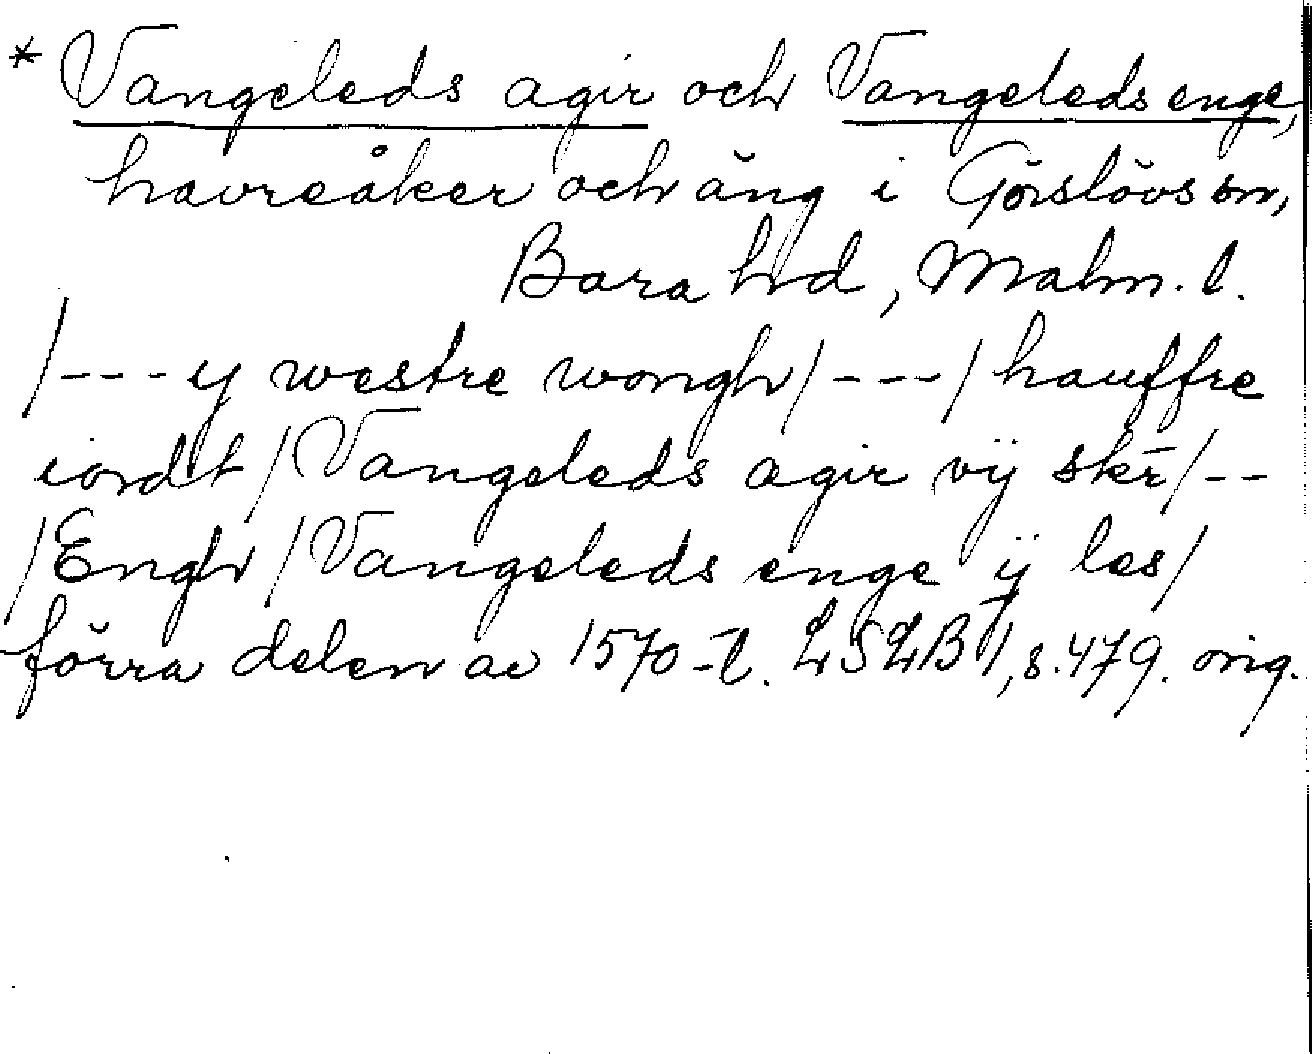 * Vangeleds agir och Vangeleds enge,
havreåker och äng i Görslövs sn,
Bara hd, Malm. l.
/---y westre wongh/---/hauffre
iordt/Vangeleds agir vij skr̄/--
/Engh/Vangeleds enge ij les/
förra delen av 1570-t. LSLB I, s. 479. orig.